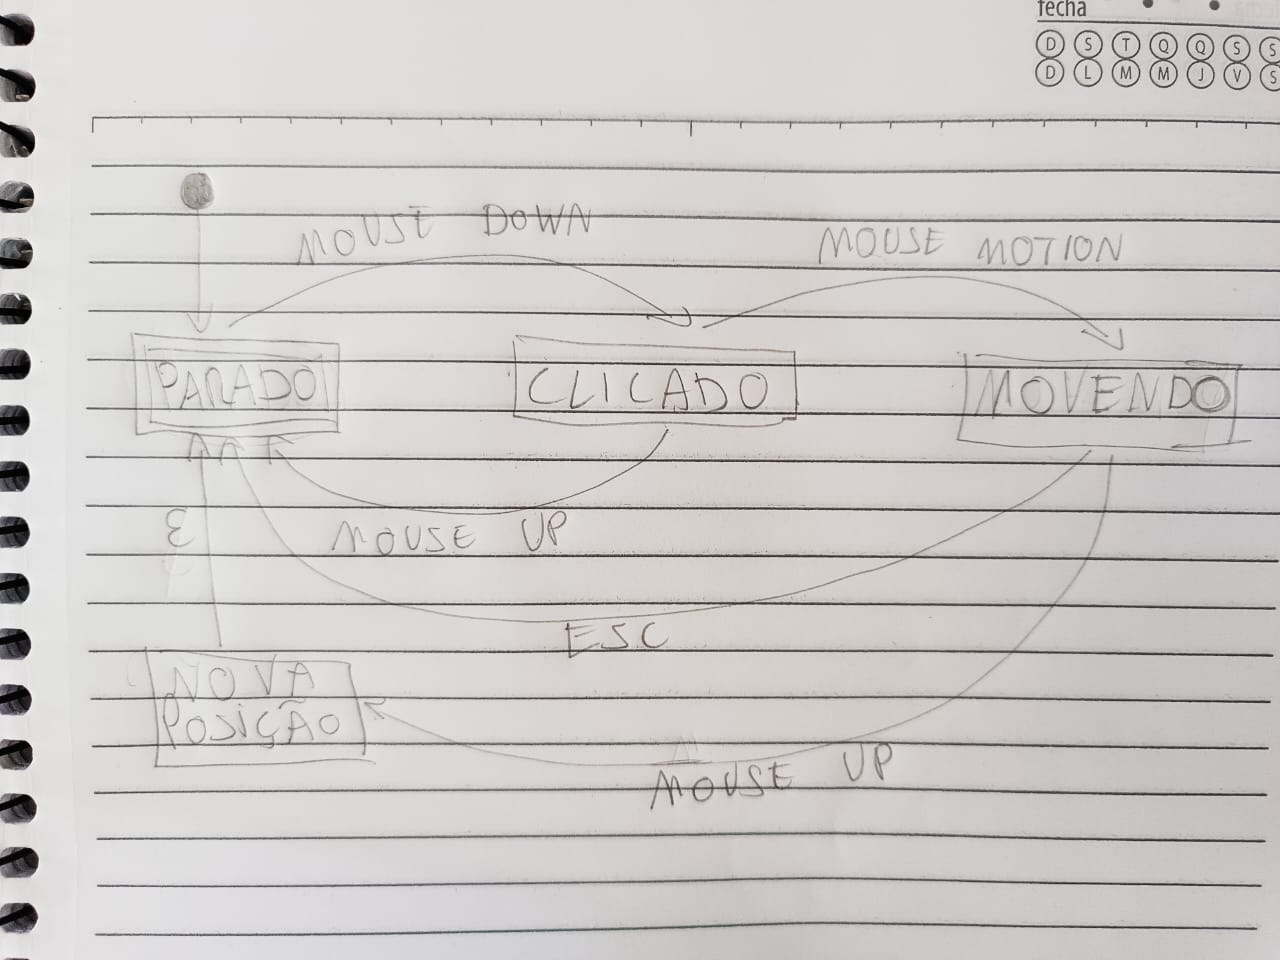 fecha
D S T Q Q S S
D L M M J V S
MOUSE DOWN
MOUSE MOTION
PARADO
CLICADO
MOVENDO
ε
MOUSE UP
ESC
NOVA
POSIÇÃO
MOUSE UP